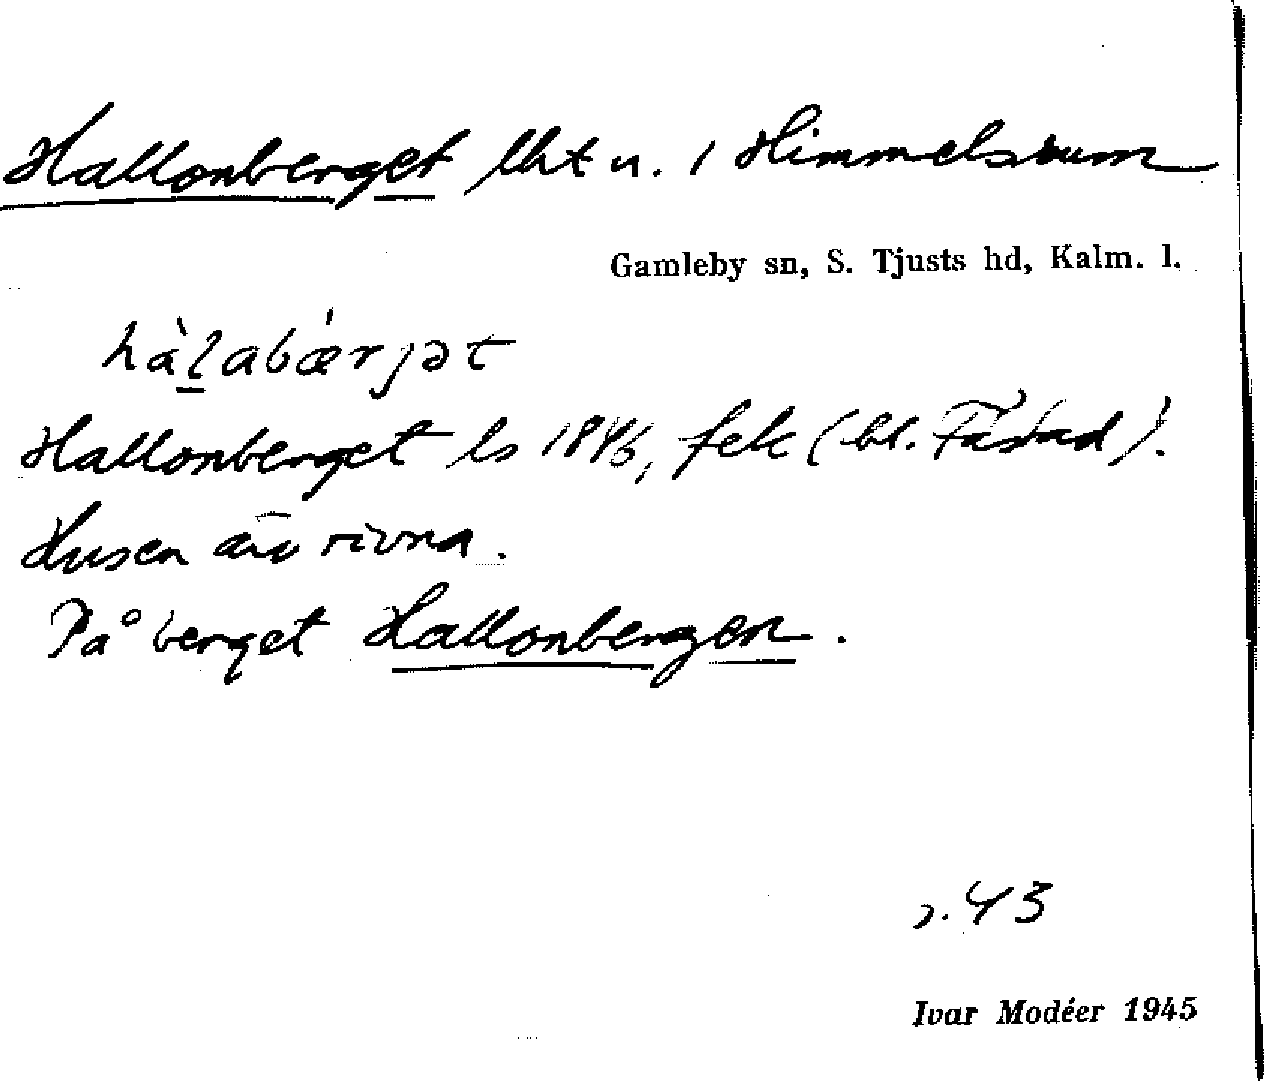 Hallonberget lht u. i Himmelsrum
Gamleby sn, S. Tjusts hd, Kalm. l.
hàlabǽrjət
Hallonberget ls 1846, fek (bl. Fästad).
Husen äro rivna.
På berget Hallonbergen.
s. 43
Ivar Modéer 1945